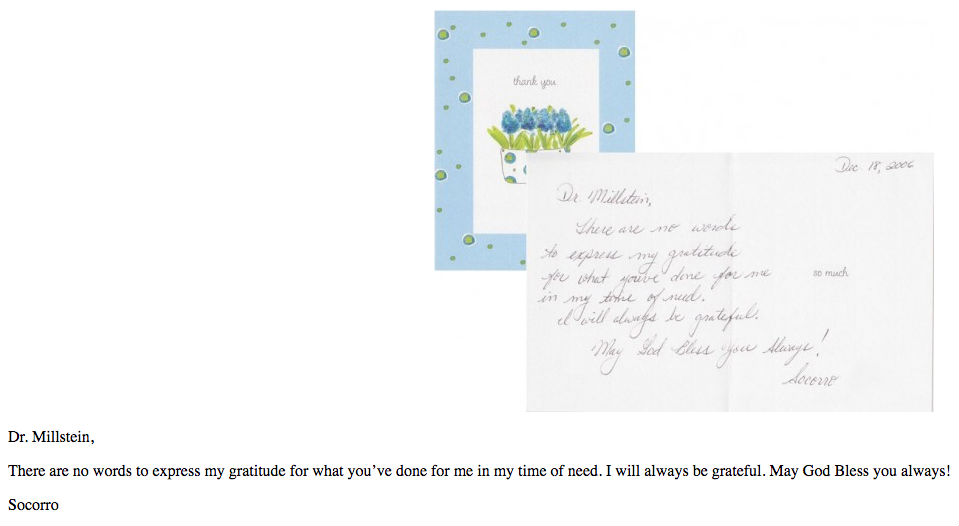 thank you
Dec 18, 2006
Dr. Millstein,
There are no words
to express my gratitude
for what you've done for me
so much
in my time of need.
I will always be grateful.
May God Bless you Always!
Socorro
Dr. Millstein,
There are no words to express my gratitude for what you’ve done for me in my time of need. I will always be grateful. May God Bless you always!
Socorro